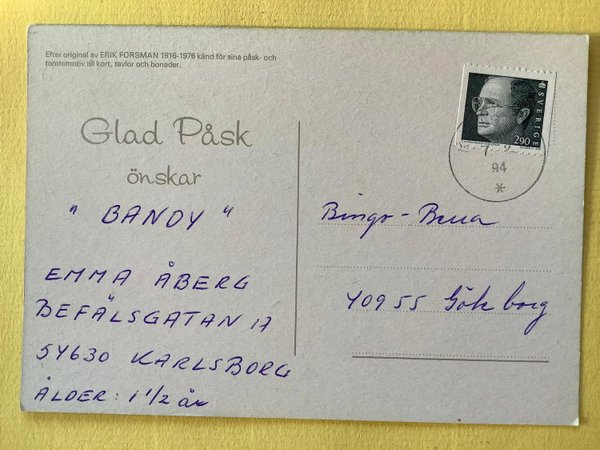 Efter original av ERIK FORSMAN 1916-1976 känd för sina påsk- och
tomtemotiv till kort, tavlor och bonader.
Glad Påsk
önskar
" BANDY "
EMMA ÅBERG
BEFÄLSGATAN 17
54630 KARLSBORG
ÅLDER: 1 1/2 år
SVERIGE
290
94
*
Bingo-
40955 Göteborg